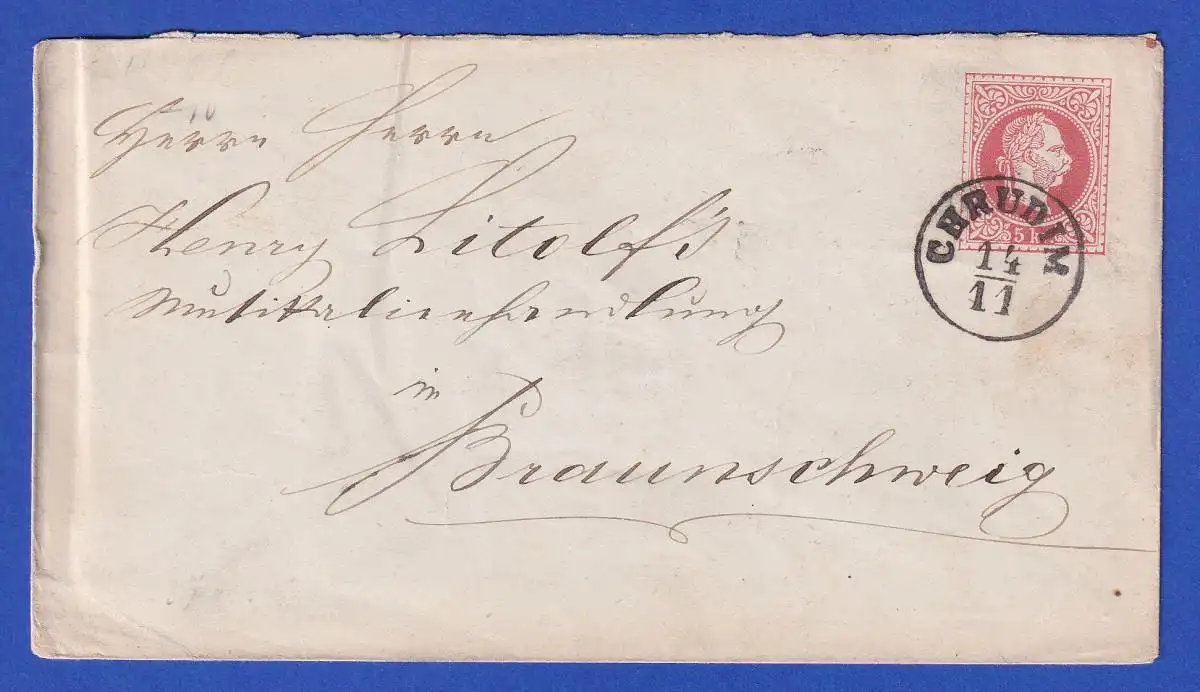 Herrn Herrn
Henry Litolff's
Musikalienhandlung
in
Braunschweig
5 K
CHRUDIM
14
11